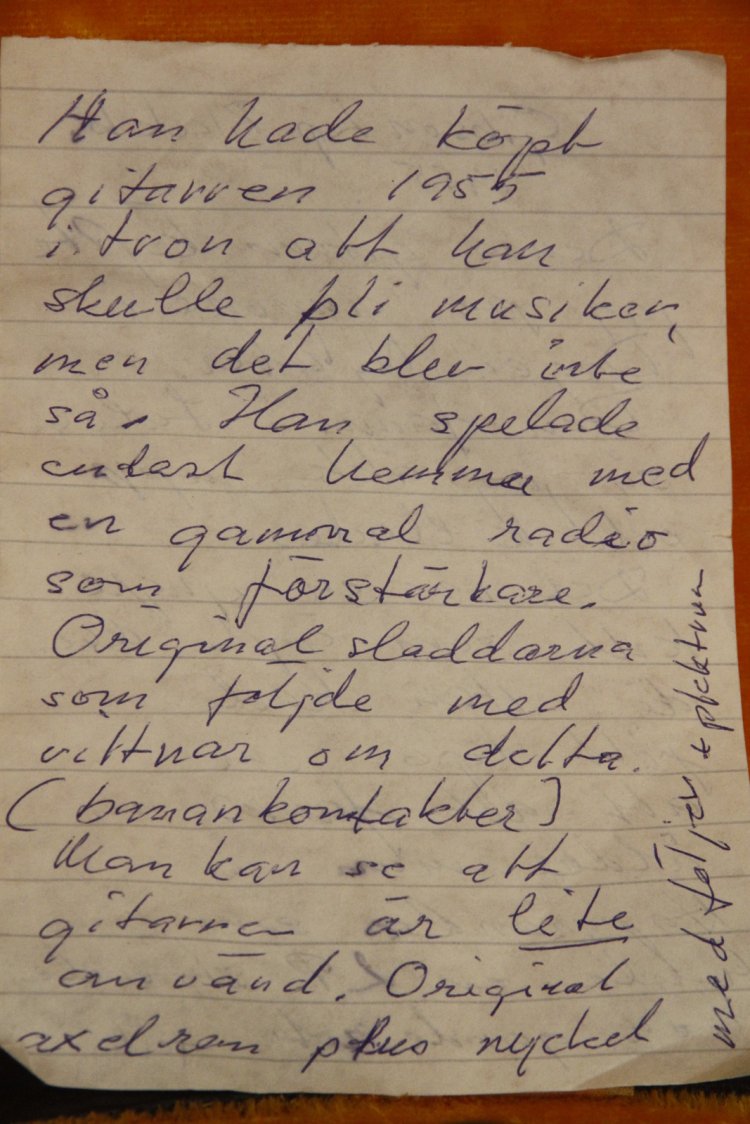 Han hade köpt
gitarren 1955
i tron att han
skulle bli musiker,
men det blev inte
så. Han spelade
endast hemma med
en gammal radio
som förstärkare.
Original sladdarna
som följde med
vittnar om detta.
(banankontakter)
Man kan se att
gitarren är lite
använd. Original
axelrem plus nyckel
medföljer + plektrum